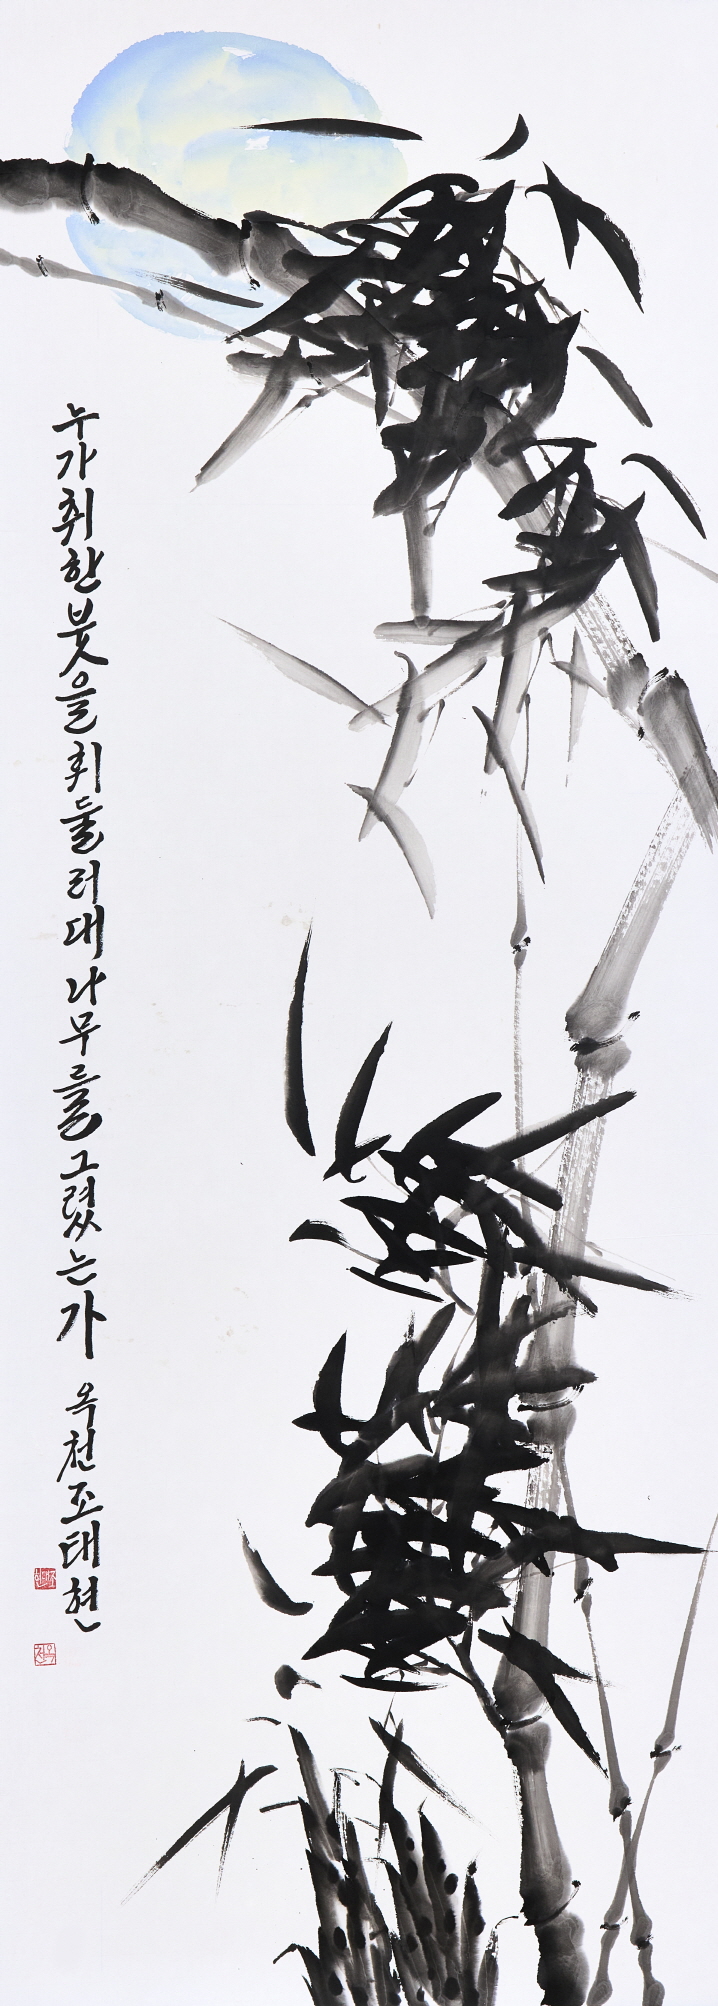 누가취한붓을휘둘러대나무를그렸는가 옥천조태현